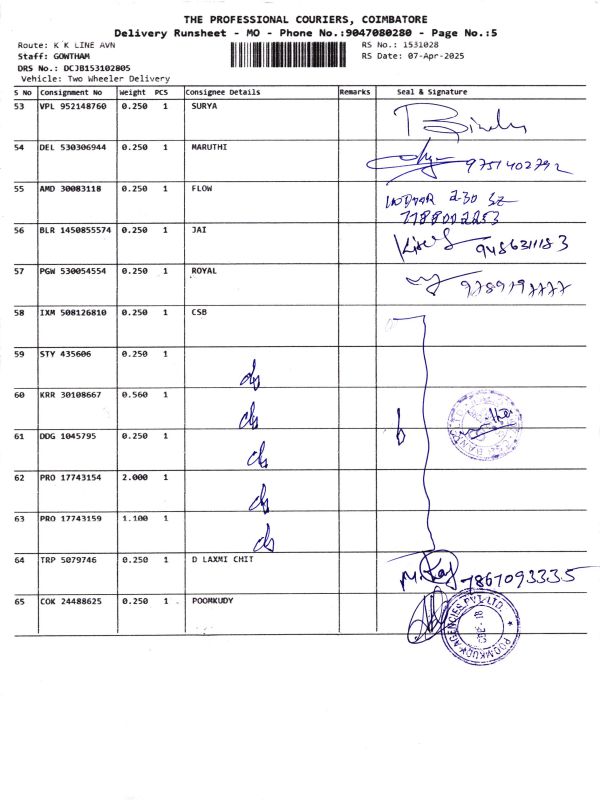 THE PROFESSIONAL COURIERS, COIMBATORE
Delivery Runsheet - MO - Phone No.:9047080280 - Page No.:5
Route: K K LINE AVN RS No.: 1531028
Staff: GOWTHAM RS Date: 07-Apr-2025
DRS No.: DCJB153102805
Vehicle: Two Wheeler Delivery
S No Consignment No Weight PCS Consignee Details Remarks Seal & Signature
53 VPL 952148760 0.250 1 SURYA
54 DEL 530306944 0.250 1 MARUTHI 9751402792
55 AMD 30083118 0.250 1 FLOW
56 BLR 1450855574 0.250 1 JAI
57 PGW 530054554 0.250 1 ROYAL
58 IXM 508126810 0.250 1 CSB
59 STY 435606 0.250 1
60 KRR 30108667 0.560 1
61 DDG 1045795 0.250 1
62 PRO 17743154 2.000 1
63 PRO 17743159 1.100 1
64 TRP 5079746 0.250 1 D LAXMI CHIT 7867093335
65 COK 24488625 0.250 1 POOMKUDY
POOMKUDY AGENCIES PVT. LTD.
CBE - 18